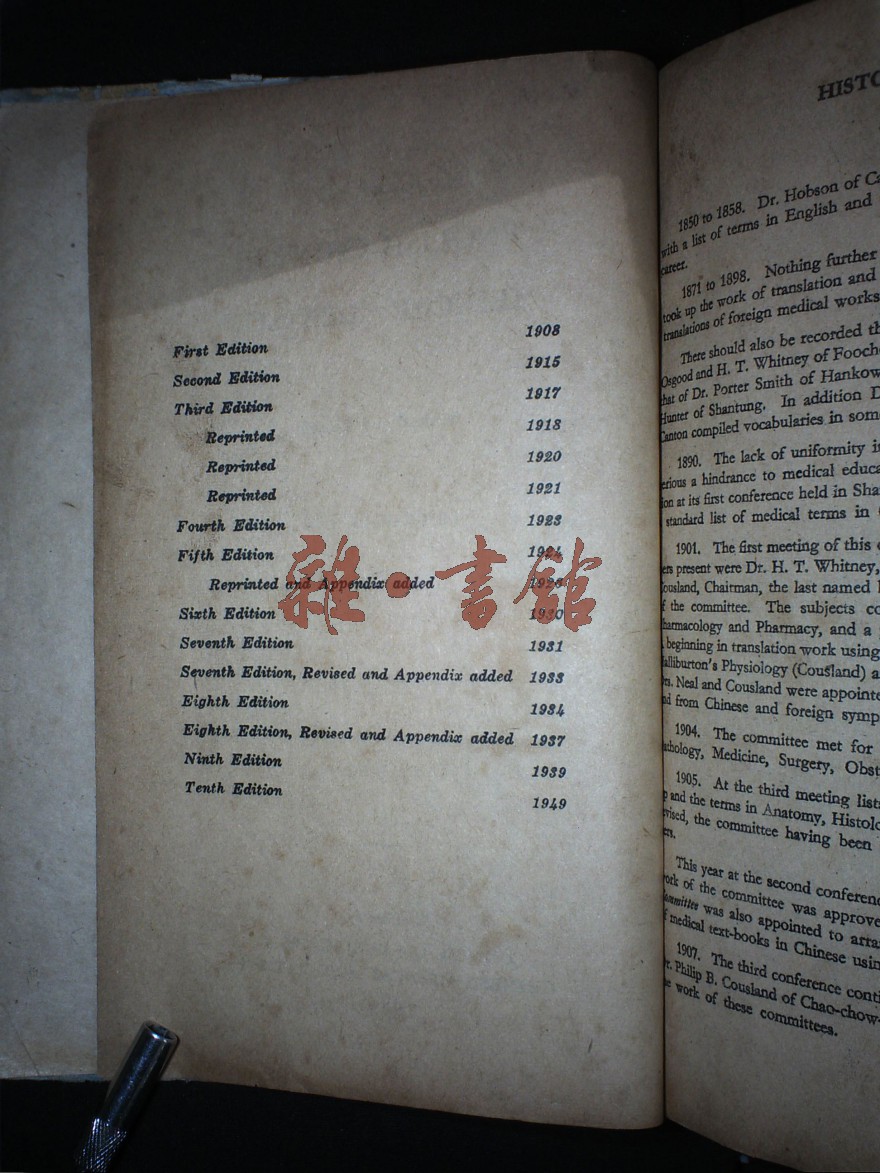 First Edition 1908
Second Edition 1915
Third Edition 1917
Reprinted 1918
Reprinted 1920
Reprinted 1921
Fourth Edition 1923
Fifth Edition 1924
Reprinted and Appendix added
Sixth Edition 1930
Seventh Edition 1931
Seventh Edition, Revised and Appendix added 1933
Eighth Edition 1934
Eighth Edition, Revised and Appendix added 1937
Ninth Edition 1939
Tenth Edition 1949
雜·書館
HISTO
1850 to 1858. Dr. Hobson of Ca
with a list of terms in English and
career.
1871 to 1898. Nothing further
took up the work of translation and
translations of foreign medical works
There should also be recorded th
Osgood and H. T. Whitney of Fooch
that of Dr. Porter Smith of Hankow
Hunter of Shantung. In addition D
Canton compiled vocabularies in som
1890. The lack of uniformity i
erious a hindrance to medical educa
ion at its first conference held in Sha
standard list of medical terms in
1901. The first meeting of this
ers present were Dr. H. T. Whitney,
Cousland, Chairman, the last named
f the committee. The subjects co
harmacology and Pharmacy, and a
beginning in translation work using
alliburton's Physiology (Cousland) a
rs. Neal and Cousland were appointe
nd from Chinese and foreign symp
1904. The committee met for
athology, Medicine, Surgery, Obst
1905. At the third meeting lists
p and the terms in Anatomy, Histolo
evised, the committee having been
ers.
This year at the second conferenc
ork of the committee was approve
ommittee was also appointed to arra
f medical text-books in Chinese usin
1907. The third conference conti
r. Philip B. Cousland of Chao-chow-
e work of these committees.